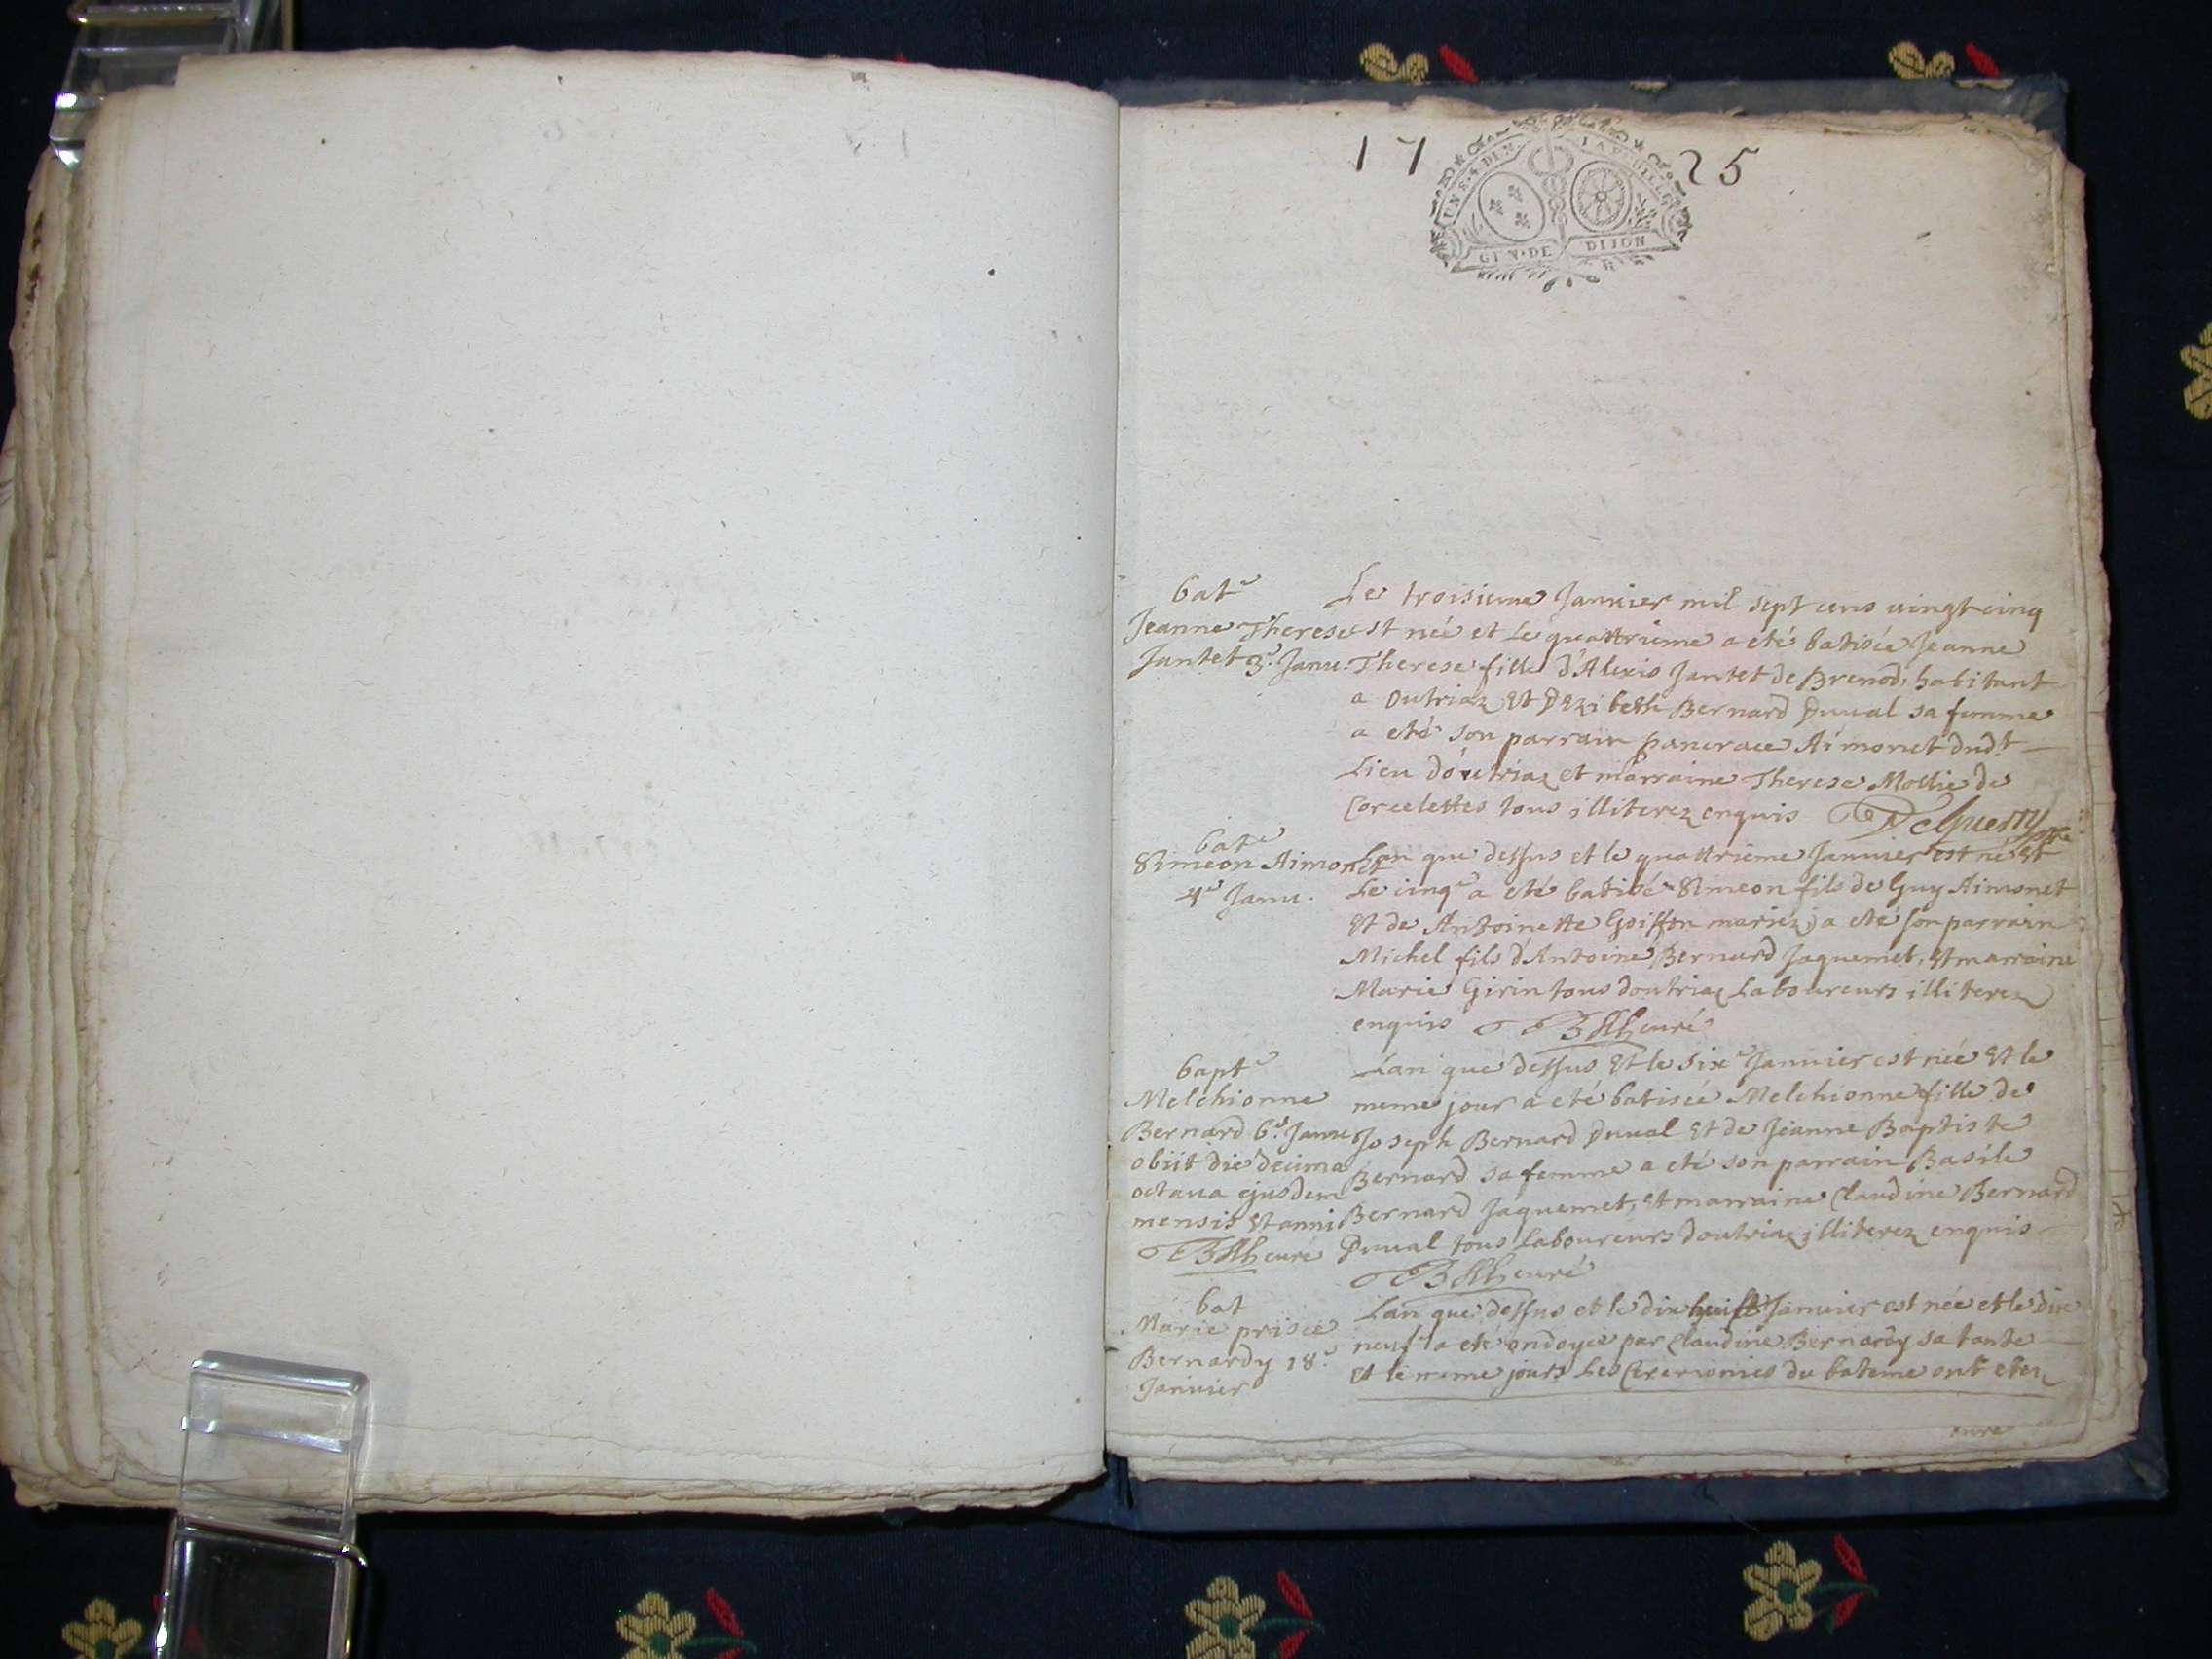 17 25
UN S. 4 DEN. LA FEUILLE
GEN. DE DIJON
bat^e
Jeanne Therese
Jantet 3^e. Janu.
Le troisieme Janvier mil sept cens uingt cinq
est née et le quattrieme a eté batisée Jeanne
Therese fille d'Alexis Jantet de Brenod, habitant
a outriaz et Bernard Duual sa femme
a eté son parrain pancrace Aimonet dud^t
Lieu d'outriaz et marraine Therese Mollie de
Corcelettes tous illiterez enquis
bat^e
Simeon Aimonet
4^e Janu.
Lan que dessus et le quattrieme Januier est né et
Le cinq^e a eté batisé Simeon fils de Guy Aimonet
et de Antoinette Goiffon mariez, a eté son parrain
Michel fils d'Antoine Bernard Jaquemet, et marraine
Marie Girin tous doutriaz Laboureurs illiterez
enquis curé
bapt^e
Melchionne
Bernard 6^e. Janu
obiit die decima
octaua ejusdem
mensis et anni
curé
Lan que dessus et le six^e Januier est née et le
meme jour a eté batisée Melchionne fille de
Joseph Bernard Duual et de Jeanne Baptiste
Bernard sa femme a eté son parrain Basile
Bernard Jaquemet, et marraine Claudine Bernard
Duual tous Laboureurs doutriaz illiterez enquis
curé
bat
Marie prisce
Bernardy 18^e.
Januier
Lan que dessus et le dix huit Januier est née et le dix
neuf a eté ondoyée par Claudine Bernardy sa tante
et le meme jours Les Ceremonies du bateme ont etez